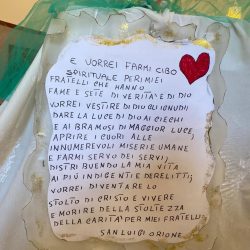 E VORREI FARMI CIBO
SPIRITUALE PER I MIEI
FRATELLI CHE HANNO
FAME E SETE DI VERITA' E DI DIO
VORREI VESTIRE DI DIO GLI IGNUDI
DARE LA LUCE DI DIO AI CIECHI
E AI BRAMOSI DI MAGGIOR LUCE,
APRIRE I CUORI ALLE
INNUMEREVOLI MISERIE UMANE
E FARMI SERVO DEI SERVI,
DISTRIBUENDO LA MIA VITA
AI PIÙ INDIGENTI E DERELITTI;
VORREI DIVENTARE LO
STOLTO DI CRISTO E VIVERE
E MORIRE DELLA STOLTEZZA
DELLA CARITA' PER MEI FRATELLI
SAN LUIGI ORIONE